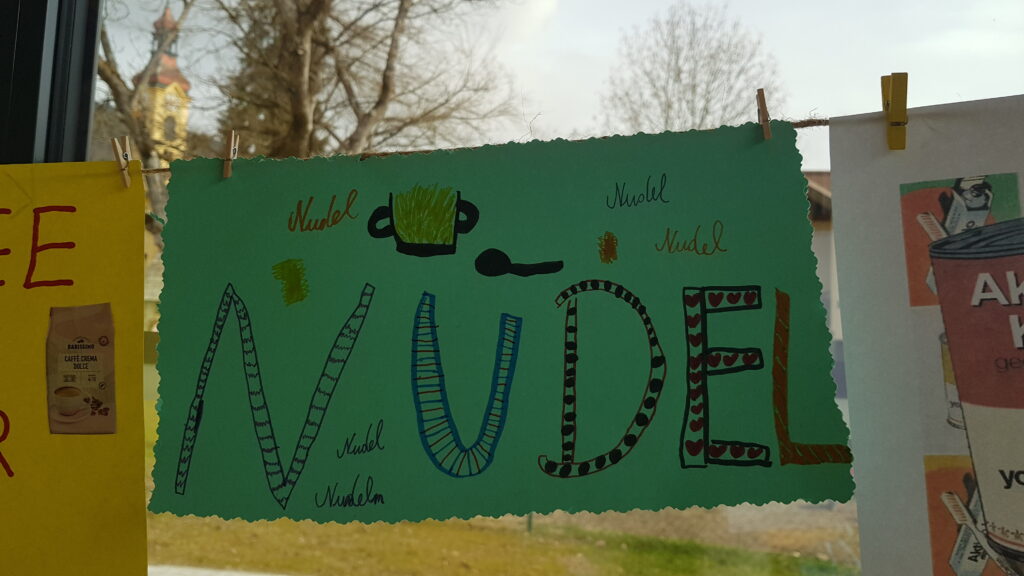 EE
R
BARISSIMO
CAFFÈ CREMA
DOLCE
Nudel
Nudel
Nudel
NUDEL
Nudel
Nudeln
AK
K
ge
yo